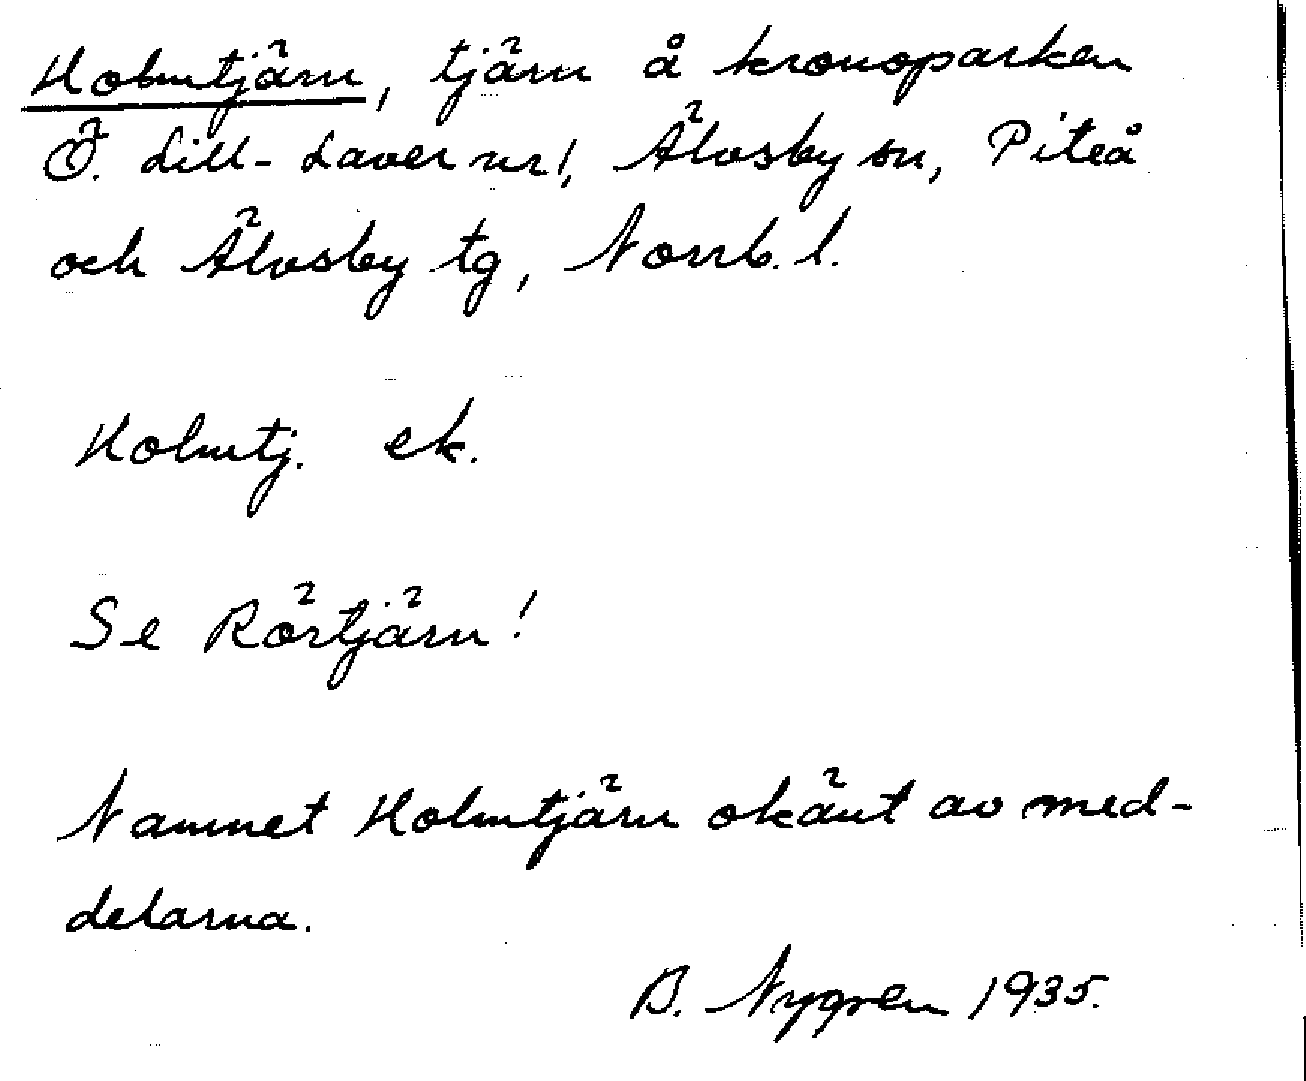 Holmtjärn, tjärn å kronoparken
Ö. Lill-Laver nr 1, Älvsby sn, Piteå
och Älvsby tg, Norrb. l.
Holmtj. ek.
Se Rörtjärn!
Namnet Holmtjärn okänt av med-
delarna.
B. Nygren 1935.